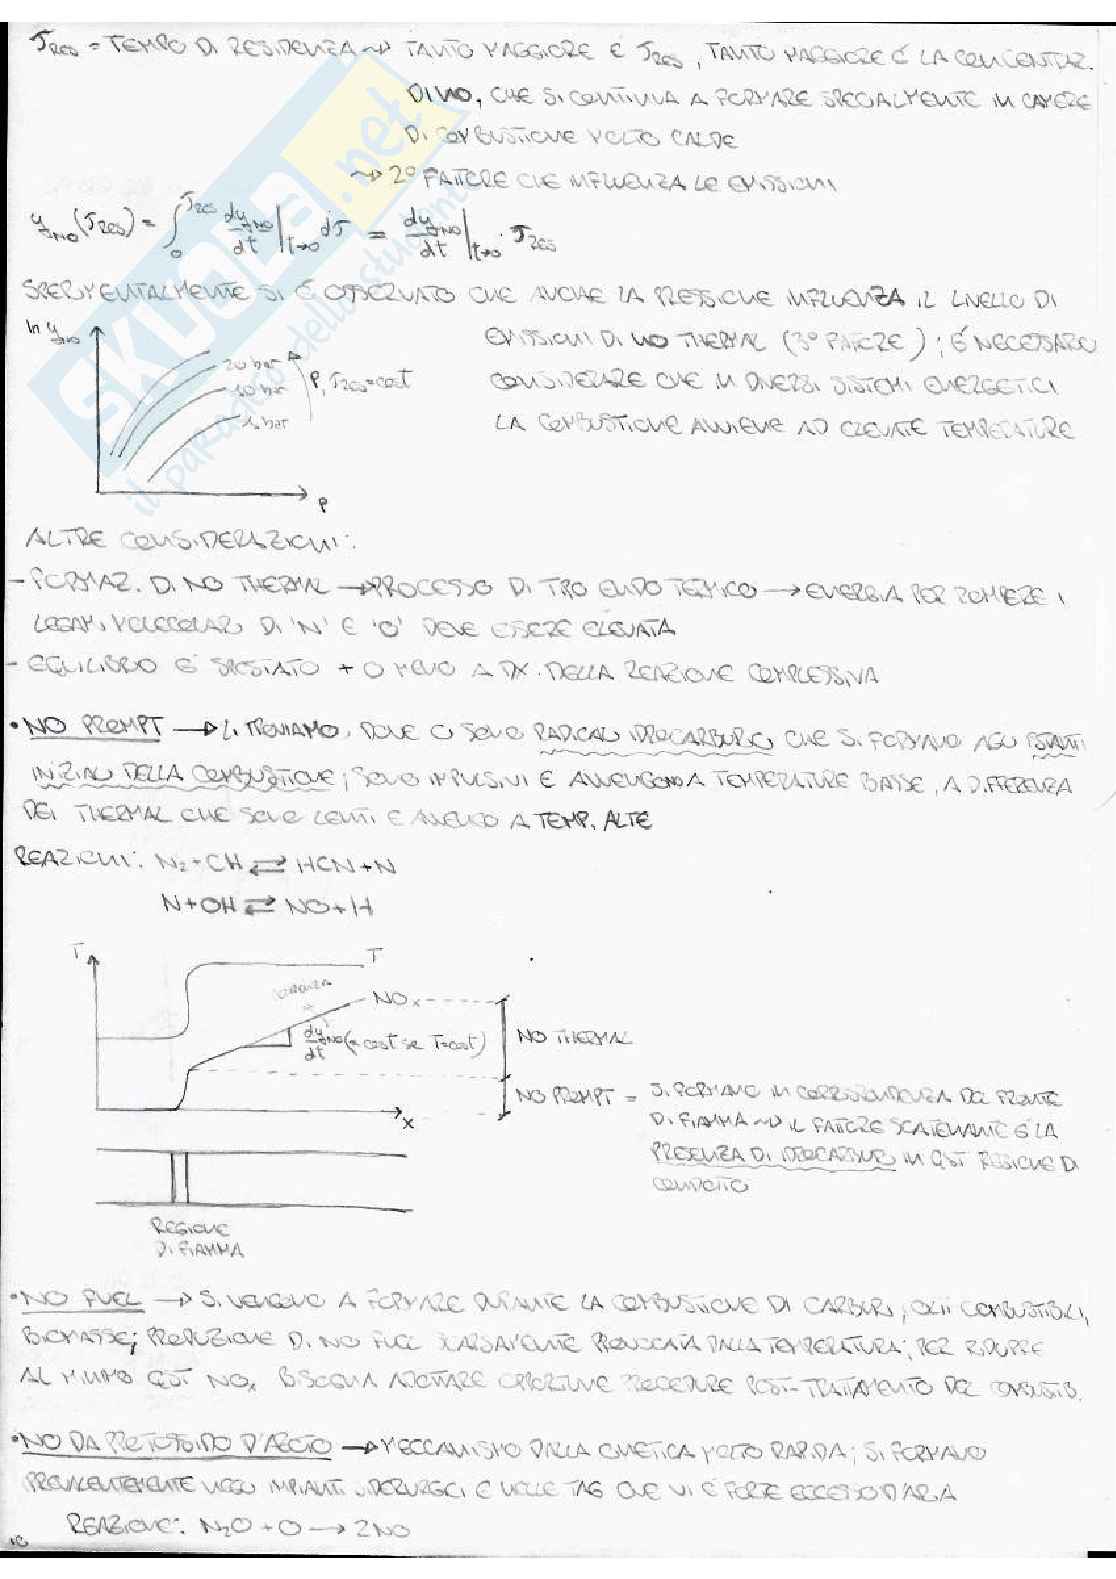 τRES = TEMPO DI RESIDENZA ~> TANTO MAGGIORE È τRES, TANTO MAGGIORE È LA CONCENTRAZ.
DI NO, CHE SI CONTINUA A FORMARE SPECIALMENTE IN CAMERE
DI COMBUSTIONE MOLTO CALDE
~> 2° FATTORE CHE INFLUENZA LE EMISSIONI
yNO(τRES) = ∫₀^τRES dyNO/dt |t→0 dτ = dyNO/dt |t→0 · τRES
SPERIMENTALMENTE SI È OSSERVATO CHE ANCHE LA PRESSIONE INFLUENZA IL LIVELLO DI
ln yNO
EMISSIONI DI NO THERMAL (3° FATTORE); È NECESSARIO
20 bar
10 bar
1 bar
P, τRES=cost
CONSIDERARE CHE IN DIVERSI SISTEMI ENERGETICI
LA COMBUSTIONE AVVIENE AD ELEVATE TEMPERATURE
φ
ALTRE CONSIDERAZIONI:
- FORMAZ. DI NO THERMAL → PROCESSO DI TIPO ENDOTERMICO → ENERGIA PER ROMPERE I
LEGAMI MOLECOLARI DI 'N' E 'O' DEVE ESSERE ELEVATA
- EQUILIBRIO È SPOSTATO + O MENO A DX. DELLA REAZIONE COMPLESSIVA
• NO PROMPT → LI TROVIAMO DOVE CI SONO RADICALI IDROCARBURICI CHE SI FORMANO AGLI ISTANTI
INIZIALI DELLA COMBUSTIONE; SONO IMPULSIVI E AVVENGONO A TEMPERATURE BASSE, A DIFFERENZA
DEI THERMAL CHE SONO LENTI E AVVENGONO A TEMP. ALTE
REAZIONI: N₂+CH ⇌ HCN+N
N+OH ⇌ NO+H
T
T
NOx
dyNO/dt (=cost se T=cost)
NO THERMAL
NO PROMPT = SI FORMANO IN CORRISPONDENZA DEL FRONTE
DI FIAMMA ~> IL FATTORE SCATENANTE È LA
PRESENZA DI IDROCARBURI IN QST REGIONE DI
CONDOTTO
x
REGIONE
DI FIAMMA
• NO FUEL → SI VENGONO A FORMARE DURANTE LA COMBUSTIONE DI CARBONI, OLII COMBUSTIBILI,
BIOMASSE; PRODUZIONE DI NO FUEL SCARSAMENTE PROVOCATA DALLA TEMPERATURA; PER RIDURRE
AL MINIMO QSTI NOx BISOGNA ADOTTARE OPPORTUNE PROCEDURE POST-TRATTAMENTO DEL COMBUSTIB.
• NO DA PROTOSSIDO D'AZOTO → MECCANISMO DALLA CINETICA MOLTO RAPIDA; SI FORMANO
PREVALENTEMENTE NEGLI IMPIANTI SIDERURGICI E NELLE TAG OVE VI È FORTE ECCESSO D'ARIA
REAZIONE: N₂O + O → 2NO
SKUOLA.net
il paradiso dello studente